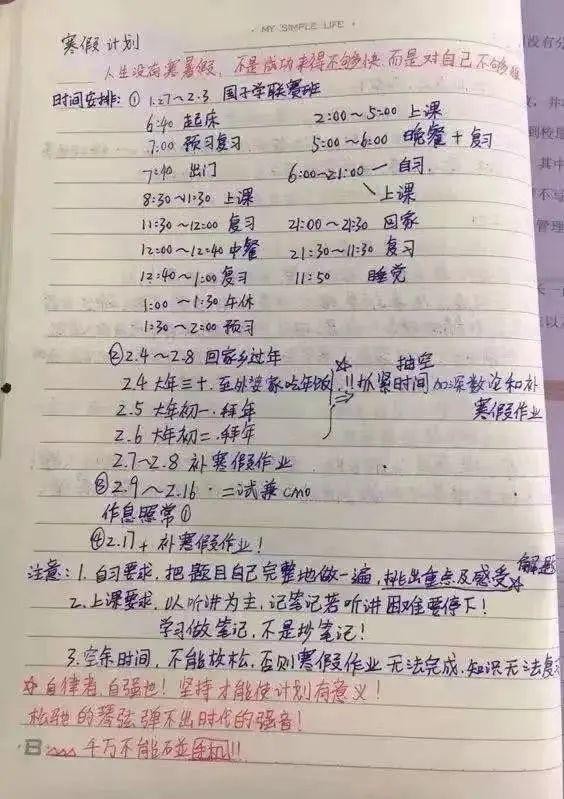 MY SIMPLE LIFE
寒假计划
人生没有寒暑假,不是成功来得不够快而是对自己不够狠
时间安排:① 1.27~2.3 国子学联赛班
6:40 起床 2:00~5:00 上课
7:00 预习复习 5:00~6:00 晚餐+复习
7:40 出门 6:00~21:00 一 自习
8:30~11:30 上课 上课
11:30~12:00 复习 21:00~21:30 回家
12:00~12:40 中餐 21:30~11:30 复习
12:40~1:00 复习 11:50 睡觉
1:00~1:30 午休
1:30~2:00 预习
② 2.4~2.8 回家乡过年
2.4 大年三十.至外婆家吃年饭
2.5 大年初一.拜年
2.6 大年初二.拜年
☆ 抽空
!! 抓紧时间加深数论和补
寒假作业
2.7~2.8 补寒假作业
③ 2.9~2.16 · 二试兼cmo
作息照常①
④ 2.17+ 补寒假作业!
注意:1.自习要求,把题目自己完整地做一遍,挑出重点及感受☆解题
2.上课要求,以听讲为主,记笔记若听讲困难要停下!
学习做笔记,不是抄笔记!
3.空余时间,不能放松,否则寒假作业无法完成,知识无法复
☆自律者,自强也!坚持才能使计划有意义!
松驰的琴弦弹不出时代的强音!
千万不能碰手机!!
没有分
其中
管理